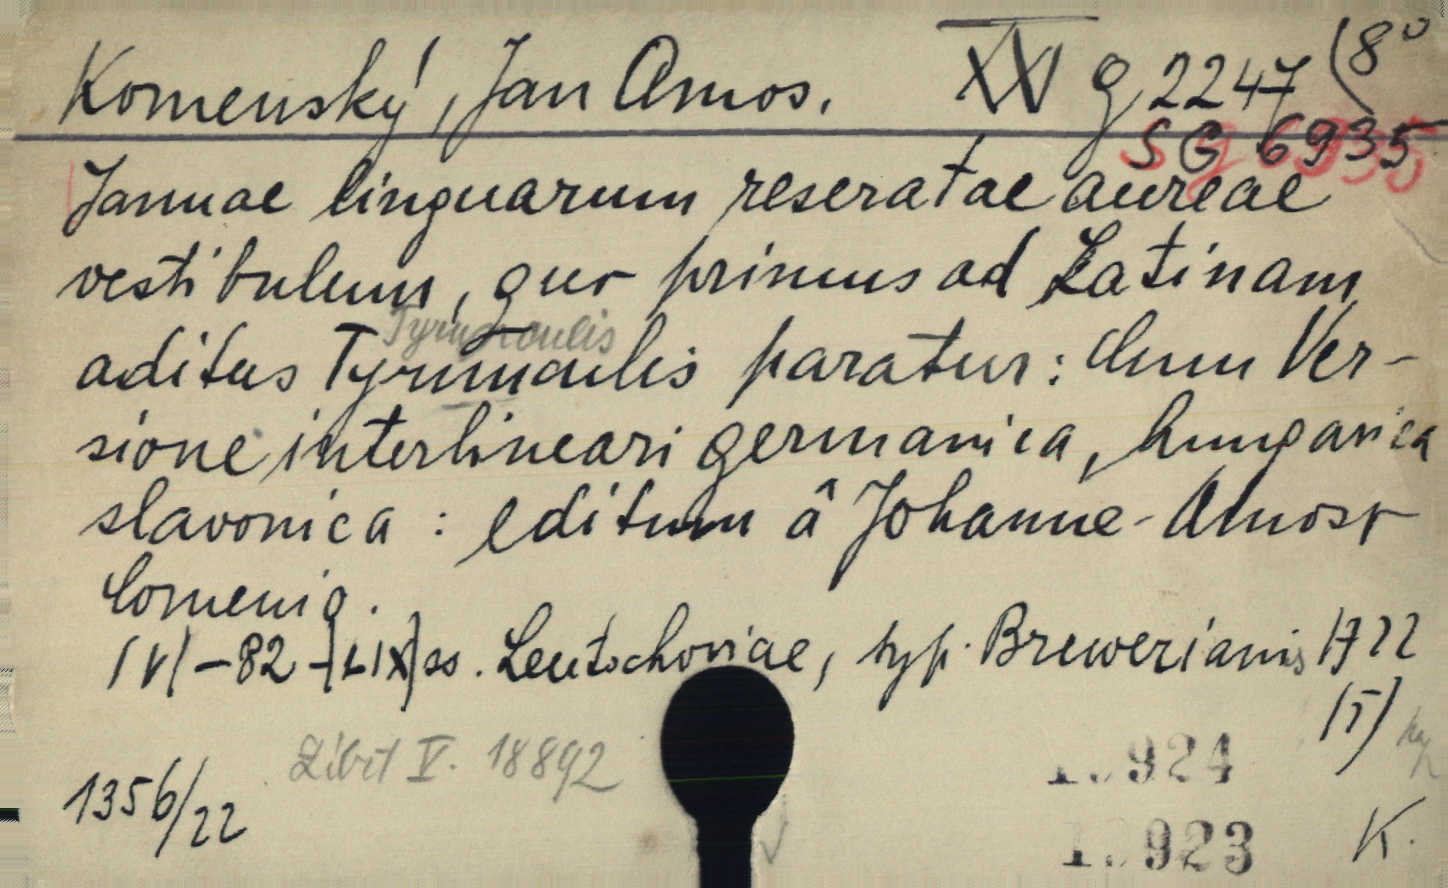 Komenský, Jan Amos. XXV g 2247 (8°
SG 6935
Januae linguarum reseratae aureae
vestibulum, quo primus ad Latinam
Tyrunculis
aditus Tyrunculis paratur: Cum Ver-
sione interlineari germanica, hungarica
slavonica : editum â Johanne-Amoso
Comenio.
(V)-82-[LIX] ss. Leutschoviae, typ. Brewerianis 1722
(T)
Zíbrt V. 18892
924
1356/22
923
K.